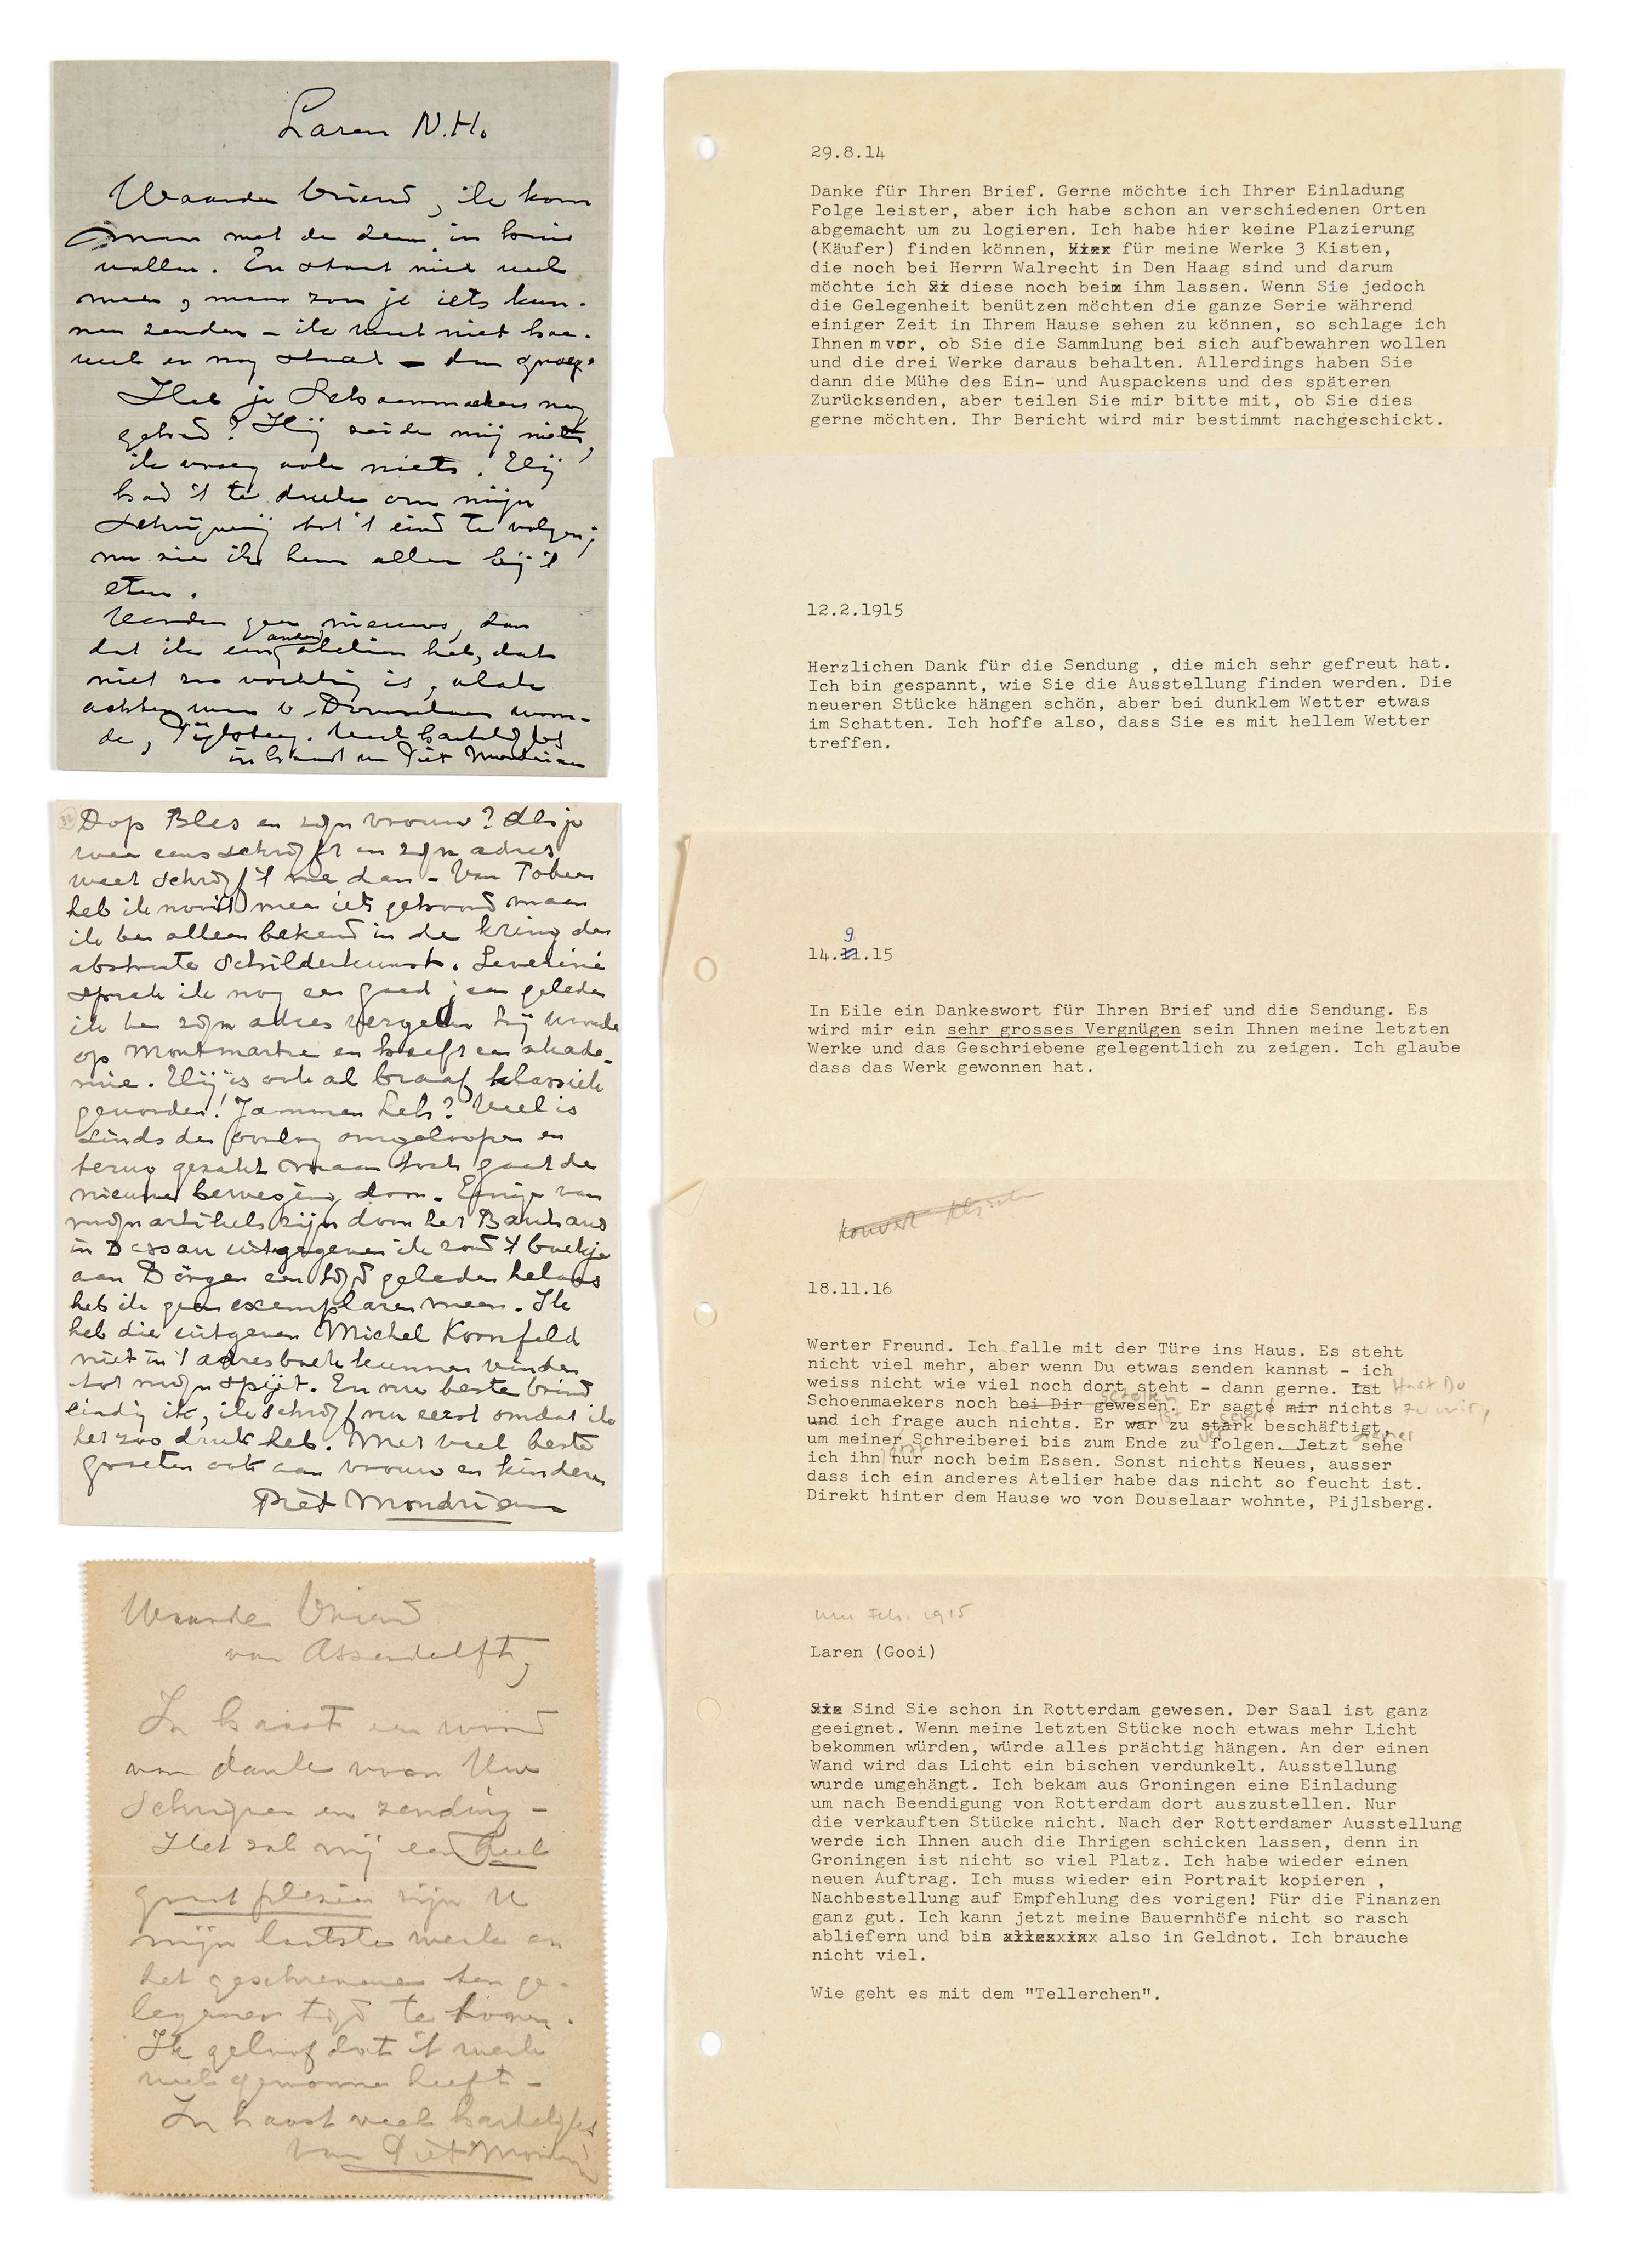 Laren N.H.
Waarde Vriend, ik kom
maar met de deur in huis
vallen. Er staat niet veel
meer, maar zou je iets kun-
nen zenden - ik weet niet hoe-
veel er nog staat - dan graag.
Heb je Schoenmaekers nog
gehad? Hij zeide mij niets,
ik vraag ook niets. Hij
had 't te druk om mijn
schrijverij tot 't eind te volgen;
nu zie ik hem alleen bij 't
eten.
Verder geen nieuws, dan
dat ik een ander atelier heb, dat
niet zoo vochtig is, vlak
achter waar v. Douselaar woon-
de, Pijlsberg. Veel hartelijks
in haast van Piet Mondriaan
Dop Bles en zijn vrouw? Als je
weer eens schrijft en zijn adres
weet schrijf 't me dan - Van Tobeen
heb ik nooit meer iets gehoord maar
ik ben alleen bekend in de kring der
abstracte Schilderkunst. Severini
sprak ik nog een goed jaar geleden
ik ben zijn adres vergeten hij woonde
op Montmartre en heeft een akade-
mie. Hij is ook al braaf klassiek
geworden! Jammer heh? Veel is
sinds den oorlog omgeloopen en
terug gezakt maar toch gaat de
nieuwe beweging door. Eenige van
mijn artikels zijn door het Bauhaus
in Dessau uitgegeven ik zond 't boekje
aan Dörgen een tijd geleden helaas
heb ik geen exemplaren meer. Ik
heb die uitgever Michel Kornfeld
niet in 't adresboek kunnen vinden
tot mijn spijt. En nu beste vriend
eindig ik, ik schrijf nu eerst omdat ik
het zoo druk heb. Met veel beste
groeten ook aan vrouw en kinderen
Piet Mondrian
Waarde Vriend
van Assendelft,
In haast een woord
van dank voor Uw
Schrijven en zending -
Het zal mij een heel
groot plezier zijn U
mijn laatste werk en
het geschrevene ten ge-
legener tijd te toonen.
Ik geloof dat 't werk
veel gewonnen heeft -
In haast veel hartelijks
van Piet Mondriaan
29.8.14
Danke für Ihren Brief. Gerne möchte ich Ihrer Einladung
Folge leister, aber ich habe schon an verschiedenen Orten
abgemacht um zu logieren. Ich habe hier keine Plazierung
(Käufer) finden können, für meine Werke 3 Kisten,
die noch bei Herrn Walrecht in Den Haag sind und darum
möchte ich diese noch beim ihm lassen. Wenn Sie jedoch
die Gelegenheit benützen möchten die ganze Serie während
einiger Zeit in Ihrem Hause sehen zu können, so schlage ich
Ihnen m vor, ob Sie die Sammlung bei sich aufbewahren wollen
und die drei Werke daraus behalten. Allerdings haben Sie
dann die Mühe des Ein- und Auspackens und des späteren
Zurücksenden, aber teilen Sie mir bitte mit, ob Sie dies
gerne möchten. Ihr Bericht wird mir bestimmt nachgeschickt.
12.2.1915
Herzlichen Dank für die Sendung , die mich sehr gefreut hat.
Ich bin gespannt, wie Sie die Ausstellung finden werden. Die
neueren Stücke hängen schön, aber bei dunklem Wetter etwas
im Schatten. Ich hoffe also, dass Sie es mit hellem Wetter
treffen.
9.
14.11.15
In Eile ein Dankeswort für Ihren Brief und die Sendung. Es
wird mir ein sehr grosses Vergnügen sein Ihnen meine letzten
Werke und das Geschriebene gelegentlich zu zeigen. Ich glaube
dass das Werk gewonnen hat.
18.11.16
Werter Freund. Ich falle mit der Türe ins Haus. Es steht
nicht viel mehr, aber wenn Du etwas senden kannst - ich
weiss nicht wie viel noch dort steht - dann gerne. Ist Hast Du
Schoenmaekers noch bei Dir gewesen. Er sagte mir nichts zu mir,
und ich frage auch nichts. Er war zu stark beschäftigt,
um meiner Schreiberei bis zum Ende zu folgen. Jetzt sehe
ich ihn nur noch beim Essen. Sonst nichts Neues, ausser
dass ich ein anderes Atelier habe das nicht so feucht ist.
Direkt hinter dem Hause wo von Douselaar wohnte, Pijlsberg.
um Feb. 1915
Laren (Gooi)
Sie Sind Sie schon in Rotterdam gewesen. Der Saal ist ganz
geeignet. Wenn meine letzten Stücke noch etwas mehr Licht
bekommen würden, würde alles prächtig hängen. An der einen
Wand wird das Licht ein bischen verdunkelt. Ausstellung
wurde umgehängt. Ich bekam aus Groningen eine Einladung
um nach Beendigung von Rotterdam dort auszustellen. Nur
die verkauften Stücke nicht. Nach der Rotterdamer Ausstellung
werde ich Ihnen auch die Ihrigen schicken lassen, denn in
Groningen ist nicht so viel Platz. Ich habe wieder einen
neuen Auftrag. Ich muss wieder ein Portrait kopieren ,
Nachbestellung auf Empfehlung des vorigen! Für die Finanzen
ganz gut. Ich kann jetzt meine Bauernhöfe nicht so rasch
abliefern und bin also in Geldnot. Ich brauche
nicht viel.
Wie geht es mit dem "Tellerchen".